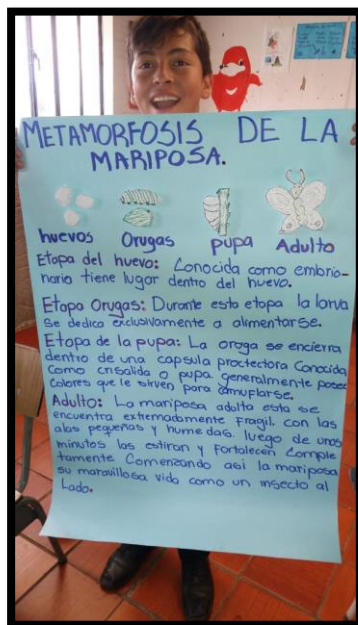 METAMORFOSIS DE LA
MARIPOSA.
huevos Orugas pupa Adulto
Etapa del huevo: Conocida como embrio-
nario tiene lugar dentro del huevo.
Etapa Orugas: Durante esta etapa la larva
se dedica exclusivamente a alimentarse.
Etapa de la pupa: La oruga se encierra
dentro de una capsula proctectora Conocida
como crisalida o pupa. generalmente posee
colores que le sirven para camuplarse.
Adulto: La mariposa adulta esta se
encuentra extremadamente Fragil. con las
alas pequeñas y humedas. luego de unos
minutos las estiran y Fortalecen Comple
tamente Comenzando asi la mariposa
su maravillosa vida como un insecto al
Lado.